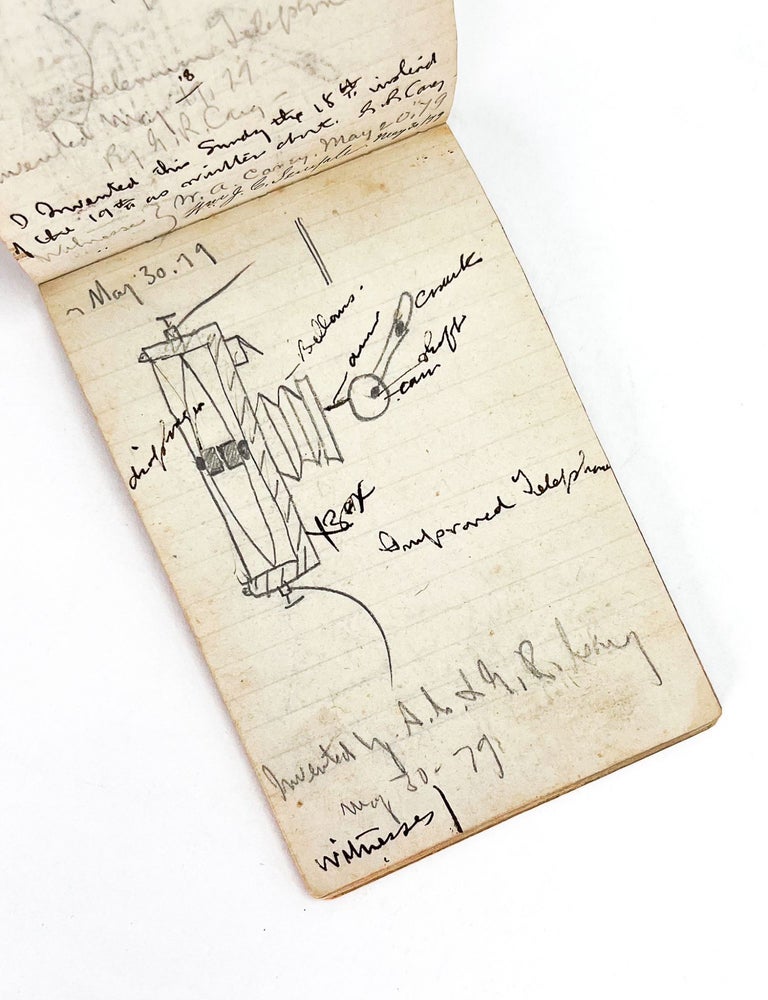 Selenium Telephone
Invented May 18, 79
By G. R. Carey
I Invented this Sunday the 18th instead
of the 19th as written above. G R Carey
Witnesses } W. A. Carey. May 20. 79
May 20 1879
May 30. 79
Bellows.
arm
crank
shaft
cam
diaphragm
Box
Improved Telephone
Invented by A. L. & G. R. Carey
may 30 - 79
witnesses